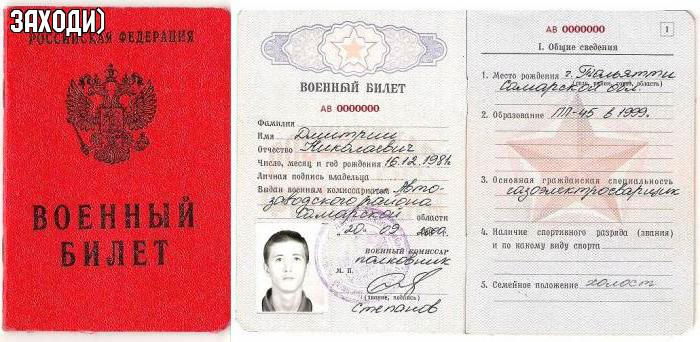 ЗАХОДИ)
РОССИЙСКАЯ ФЕДЕРАЦИЯ
ВОЕННЫЙ
БИЛЕТ
ВОЕННЫЙ БИЛЕТ
АВ 0000000
Фамилия
Имя Дмитрий
Отчество Николаевич
Число, месяц и год рождения 16.12.1981г.
Личная подпись владельца
Выдан военным комиссариатом Авто-
заводского района
Самарской области
"20" 09
ВОЕННЫЙ КОМИССАР
полковник
М. П.
(звание, подпись)
Степанов
АВ 0000000
1
I. Общие сведения
1. Место рождения г. Тольятти
Самарской обл.
2. Образование ПЛ-45 в 1999г.
3. Основная гражданская специальность
газоэлектросварщик
4. Наличие спортивного разряда (звания)
и по какому виду спорта
5. Семейное положение холост